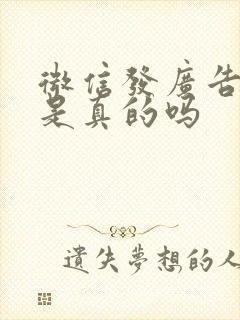 微信發廣告
是真的吗
遺失夢想的人